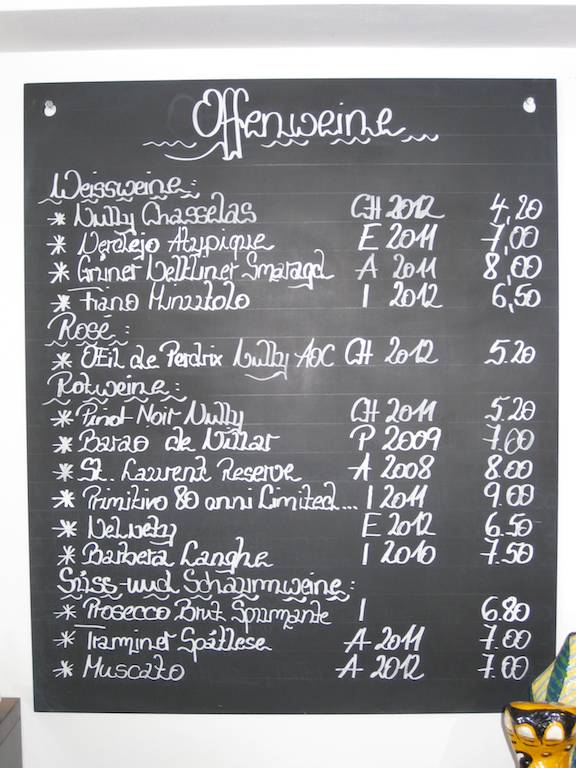 Offenweine
Weissweine:
* Vully Chasselas CH 2012 4,20
* Verdejo Atypique E 2011 7,00
* Grüner Veltliner Smaragd A 2011 8,00
* Fiano Minutolo I 2012 6,50
Rosé:
* Œil de Perdrix Vully AOC CH 2012 5.20
Rotweine:
* Pinot Noir Vully CH 2011 5.20
* Barao de Villar P 2009 7.00
* St. Laurent Reserve A 2008 8.00
* Primitivo 80 anni Limited... I 2011 9.00
* Velvety E 2012 6.50
* Barbera Langhe I 2010 7.50
Süss- und Schaumweine:
* Prosecco Brut Spumante I 6.80
* Traminer Spätlese A 2011 7.00
* Muscato A 2012 7.00